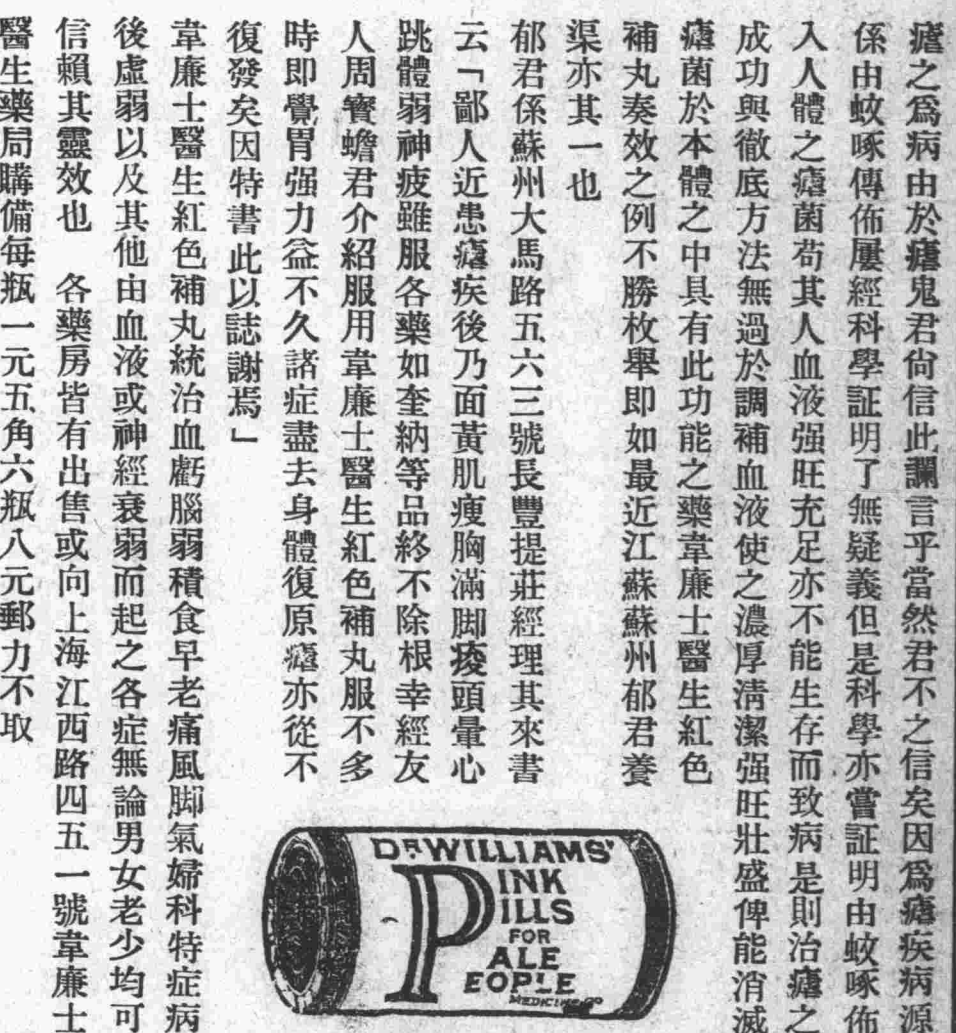 瘧之爲病由於瘧鬼君尙信此讕言乎當然君不之信矣因爲瘧疾病源
係由蚊啄傳佈屢經科學証明了無疑義但是科學亦嘗証明由蚊啄佈
入人體之瘧菌苟其人血液强旺充足亦不能生存而致病是則治瘧之
成功與徹底方法無過於調補血液使之濃厚淸潔强旺壯盛俾能消滅
瘧菌於本體之中具有此功能之藥韋廉士醫生紅色
補丸奏效之例不勝枚舉即如最近江蘇蘇州郁君養
渠亦其一也
郁君係蘇州大馬路五六三號長豐提莊經理其來書
云「鄙人近患瘧疾後乃面黃肌瘦胸滿脚痠頭暈心
跳體弱神疲雖服各藥如奎納等品終不除根幸經友
人周寳蟾君介紹服用韋廉士醫生紅色補丸服不多
時即覺胃强力益不久諸症盡去身體復原瘧亦從不
復發矣因特書此以誌謝焉」
韋廉士醫生紅色補丸統治血虧腦弱積食早老痛風脚氣婦科特症病
後虛弱以及其他由血液或神經衰弱而起之各症無論男女老少均可
信賴其靈效也　各藥房皆有出售或向上海江西路四五一號韋廉士
醫生藥局購備每瓶一元五角六瓶八元郵力不取
DR WILLIAMS'
PINK
PILLS
FOR
PALE
PEOPLE
MEDICINE CO